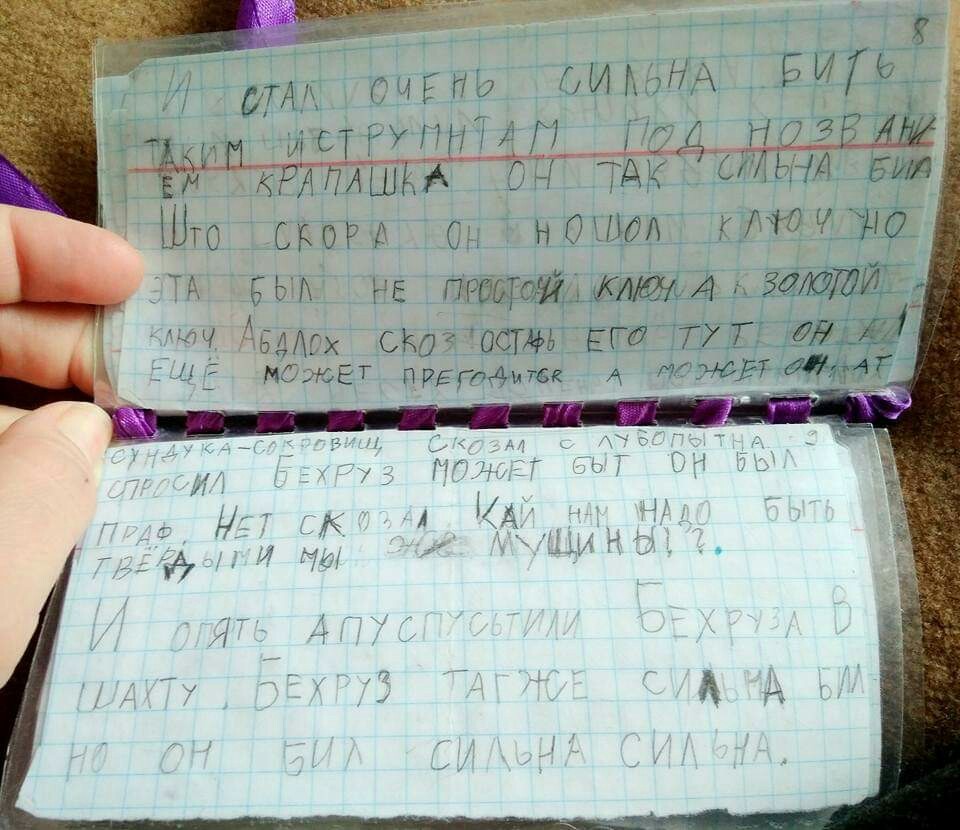 8
И СТАЛ ОЧЕНЬ СИЛЬНА БИТЬ
ТАКИМ ИСТРУМНТАМ ПОД НОЗВАНИ-
ЕМ КРАПАШКА ОН ТАК СИЛЬНА БИЛ
ШТО СКОРА ОН НОШОЛ КЛЮЧ НО
ЭТА БЫЛ НЕ ПРОСТОЙ КЛЮЧ А ЗОЛОТОЙ
КЛЮЧ АБДЛОХ СКОЗ ОСТАФЬ ЕГО ТУТ ОН
ЕЩЁ МОЖЕТ ПРЕГОДИТСЯ А МОЖЕТ ОН АТ
СУНДУКА-СОКРОВИЩ СКОЗАЛ С ЛУБОПЫТНА 9
СПРОСИЛ БЕХРУЗ МОЖЕТ БЫТ ОН БЫЛ
ПРАФ. НЕТ СКОЗАЛ КАЙ НАМ НАДО БЫТЬ
ТВЁРДЫМИ МЫ ЖЕ МУЩИНЫ?.
И ОПЯТЬ АПУСПУСЬТИЛИ БЕХРУЗА В
ШАХТУ. БЕХРУЗ ТАГЖЕ СИЛЬНА БИЛ
НО ОН БИЛ СИЛЬНА СИЛЬНА.